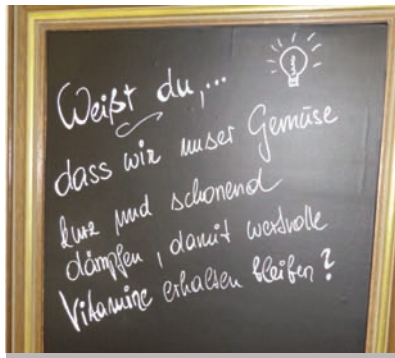 Weißt du,...
dass wir unser Gemüse
kurz und schonend
dämpfen, damit wertvolle
Vitamine erhalten bleiben?